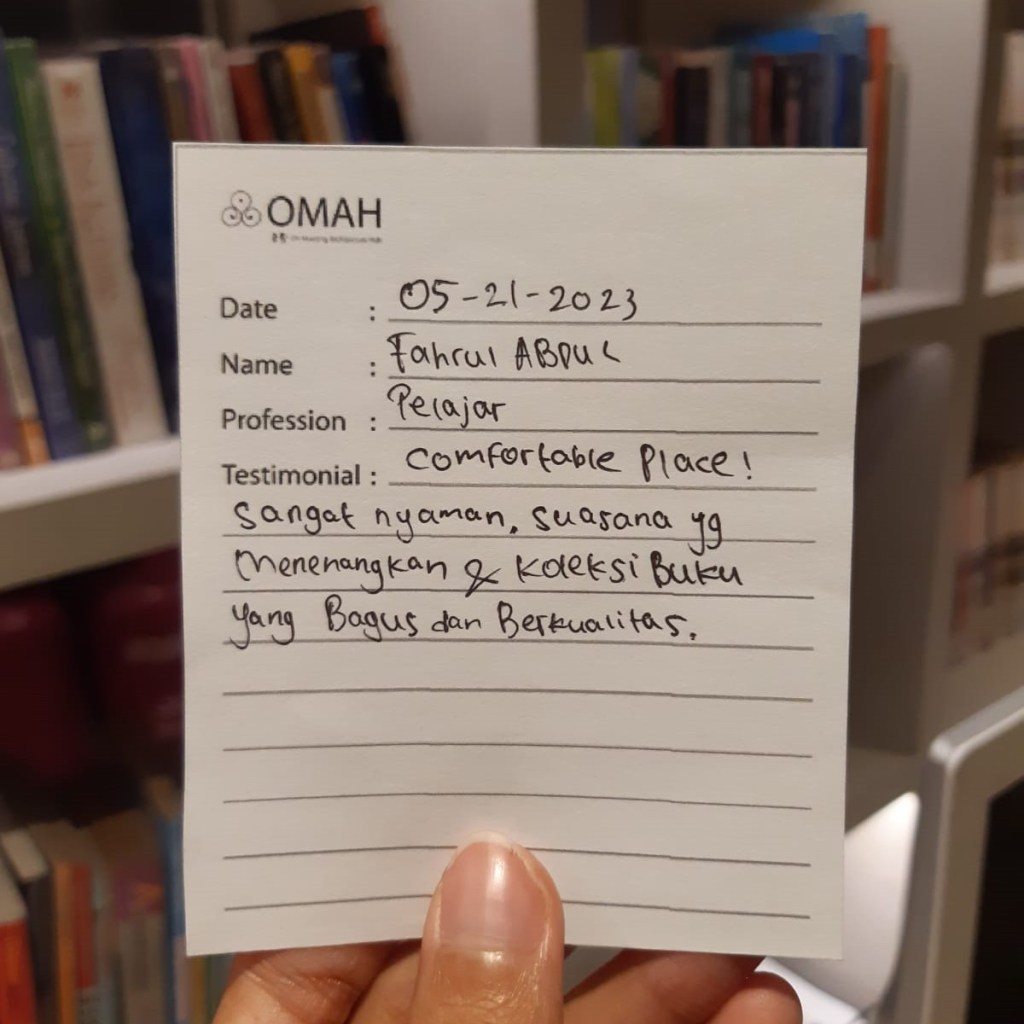 OMAH
Date : 05-21-2023
Name : Fahrul ABDUL
Profession : Pelajar
Testimonial : Comfortable Place!
Sangat nyaman, suasana yg
Menenangkan & Koleksi Buku
yang Bagus dan Berkualitas.